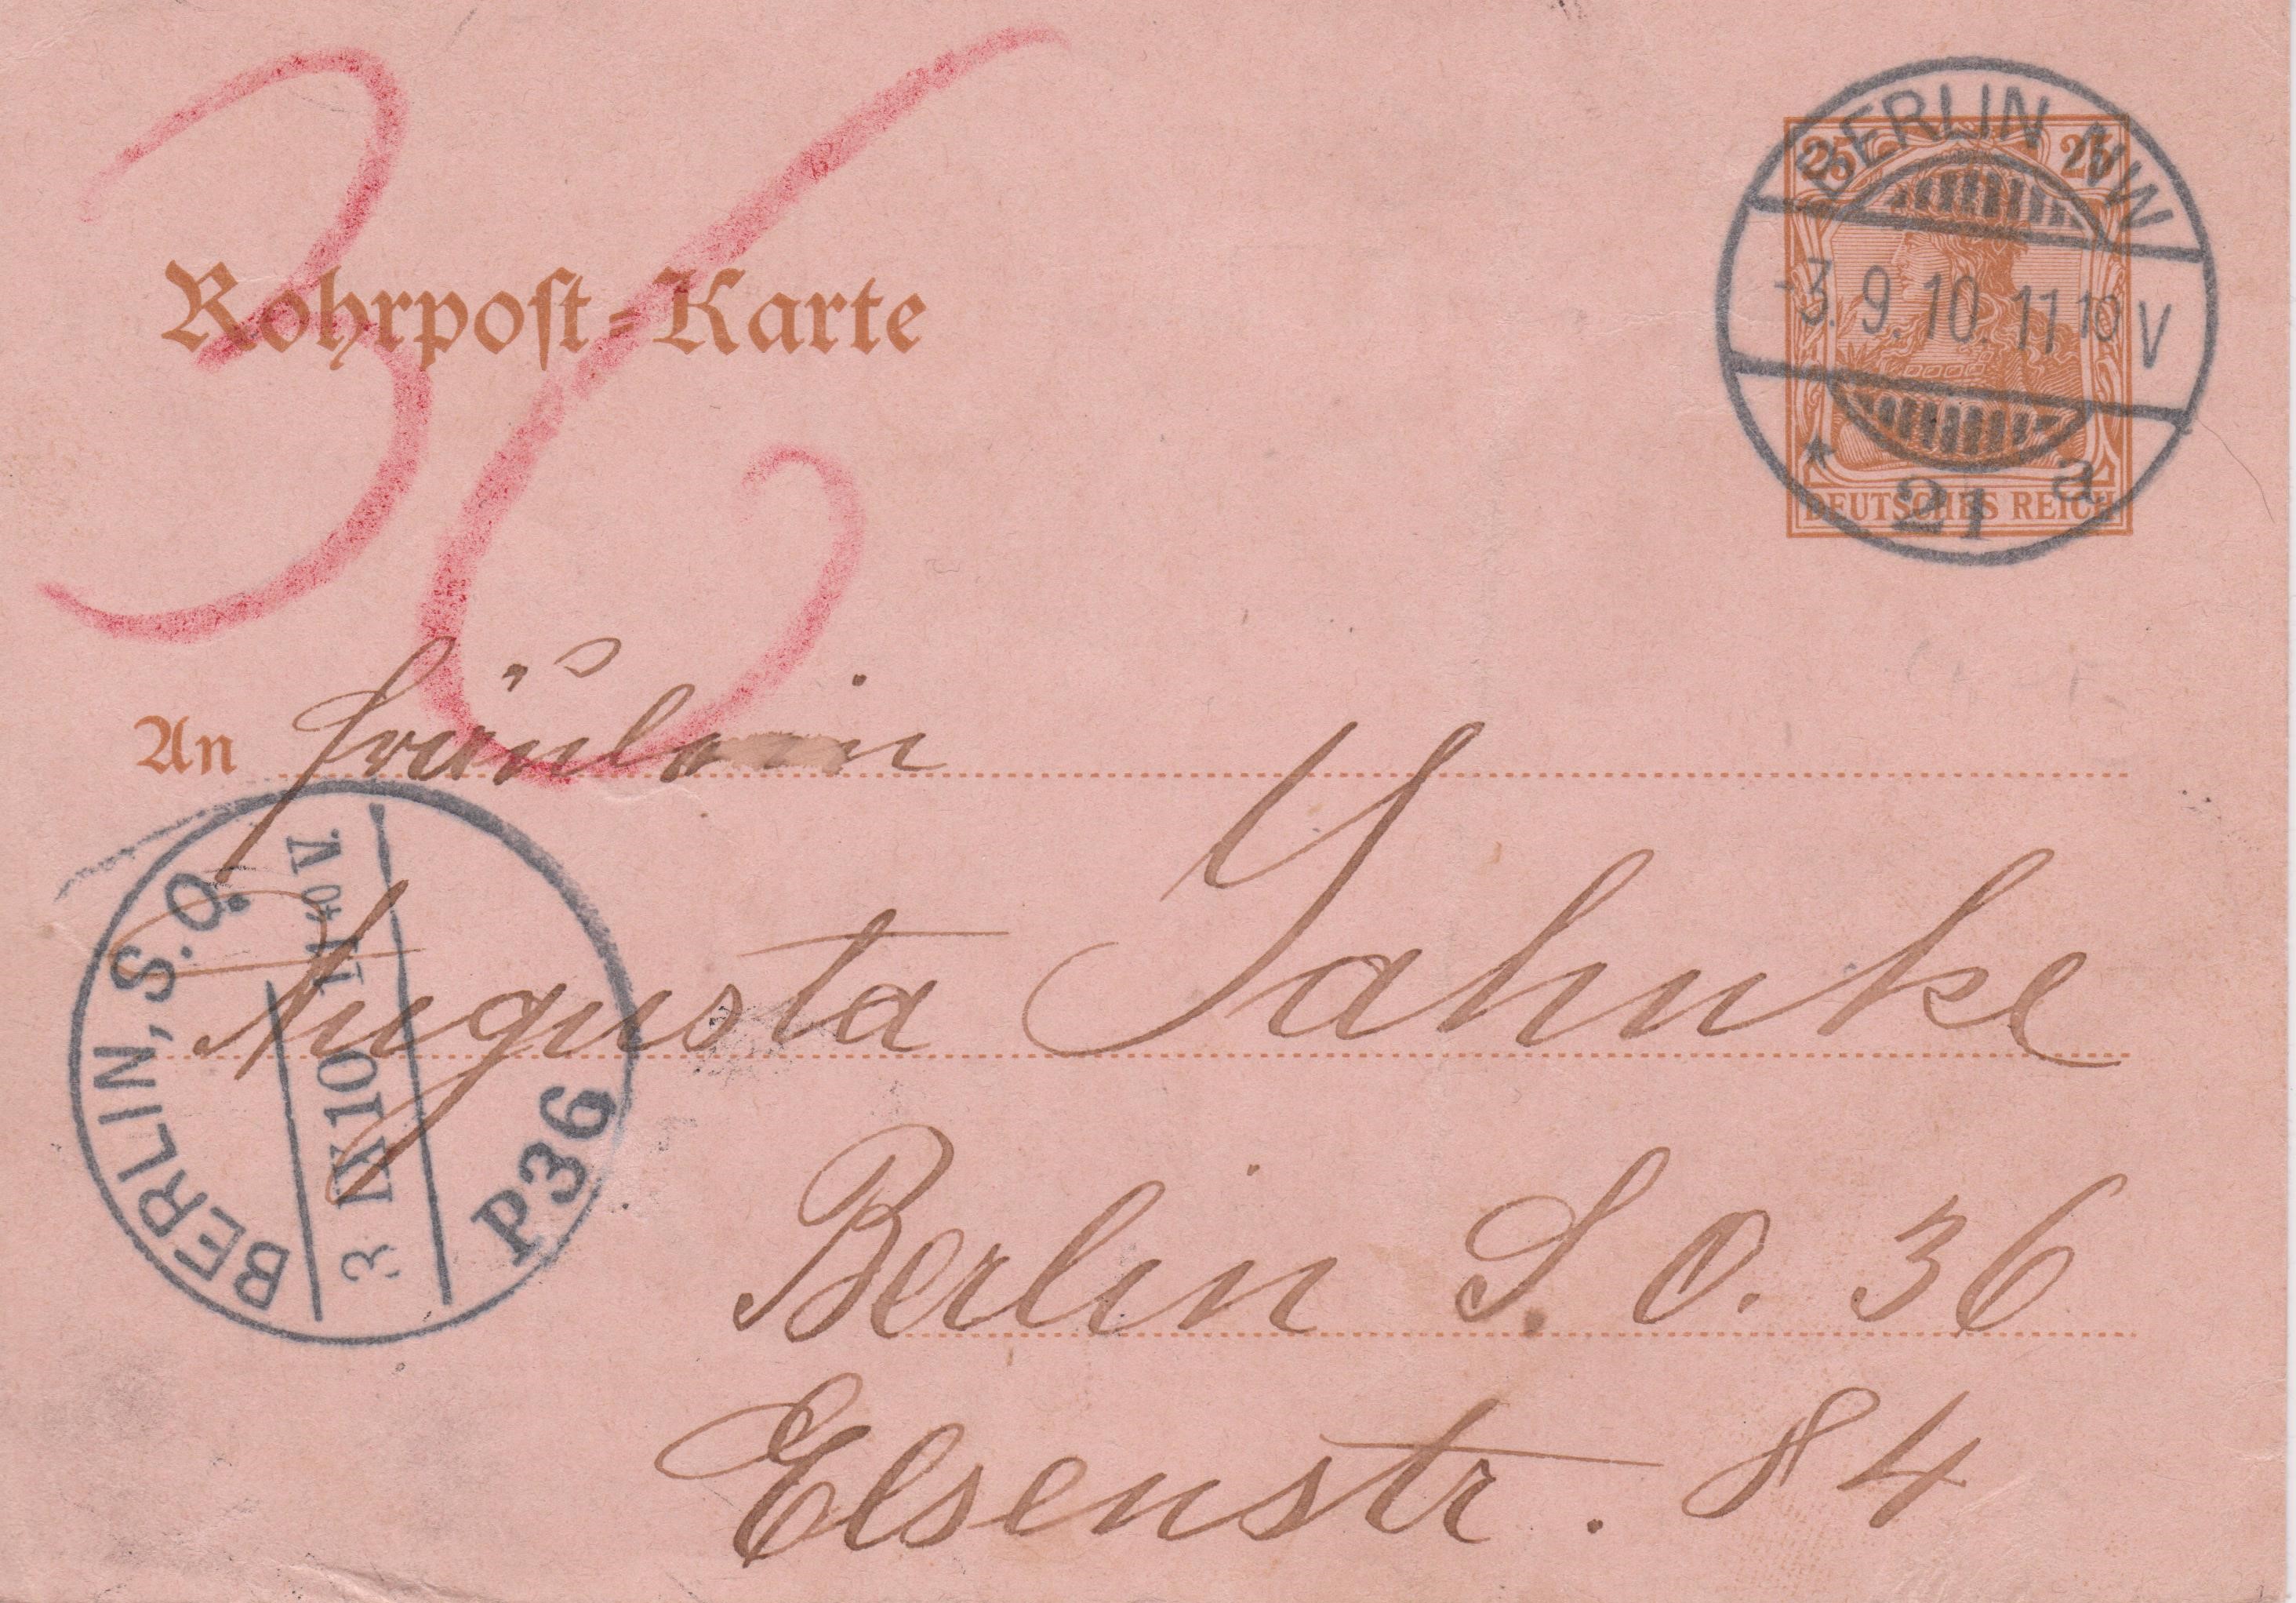 36
Rohrpost-Karte
25 25
DEUTSCHES REICH
BERLIN NW
-3.9.10.11 10 V
* 21 a
An Fräulein
Augusta Jahnke
Berlin S. O. 36
Elsenstr. 84
BERLIN, S.O.
3 IX 10 11 40 V.
P36